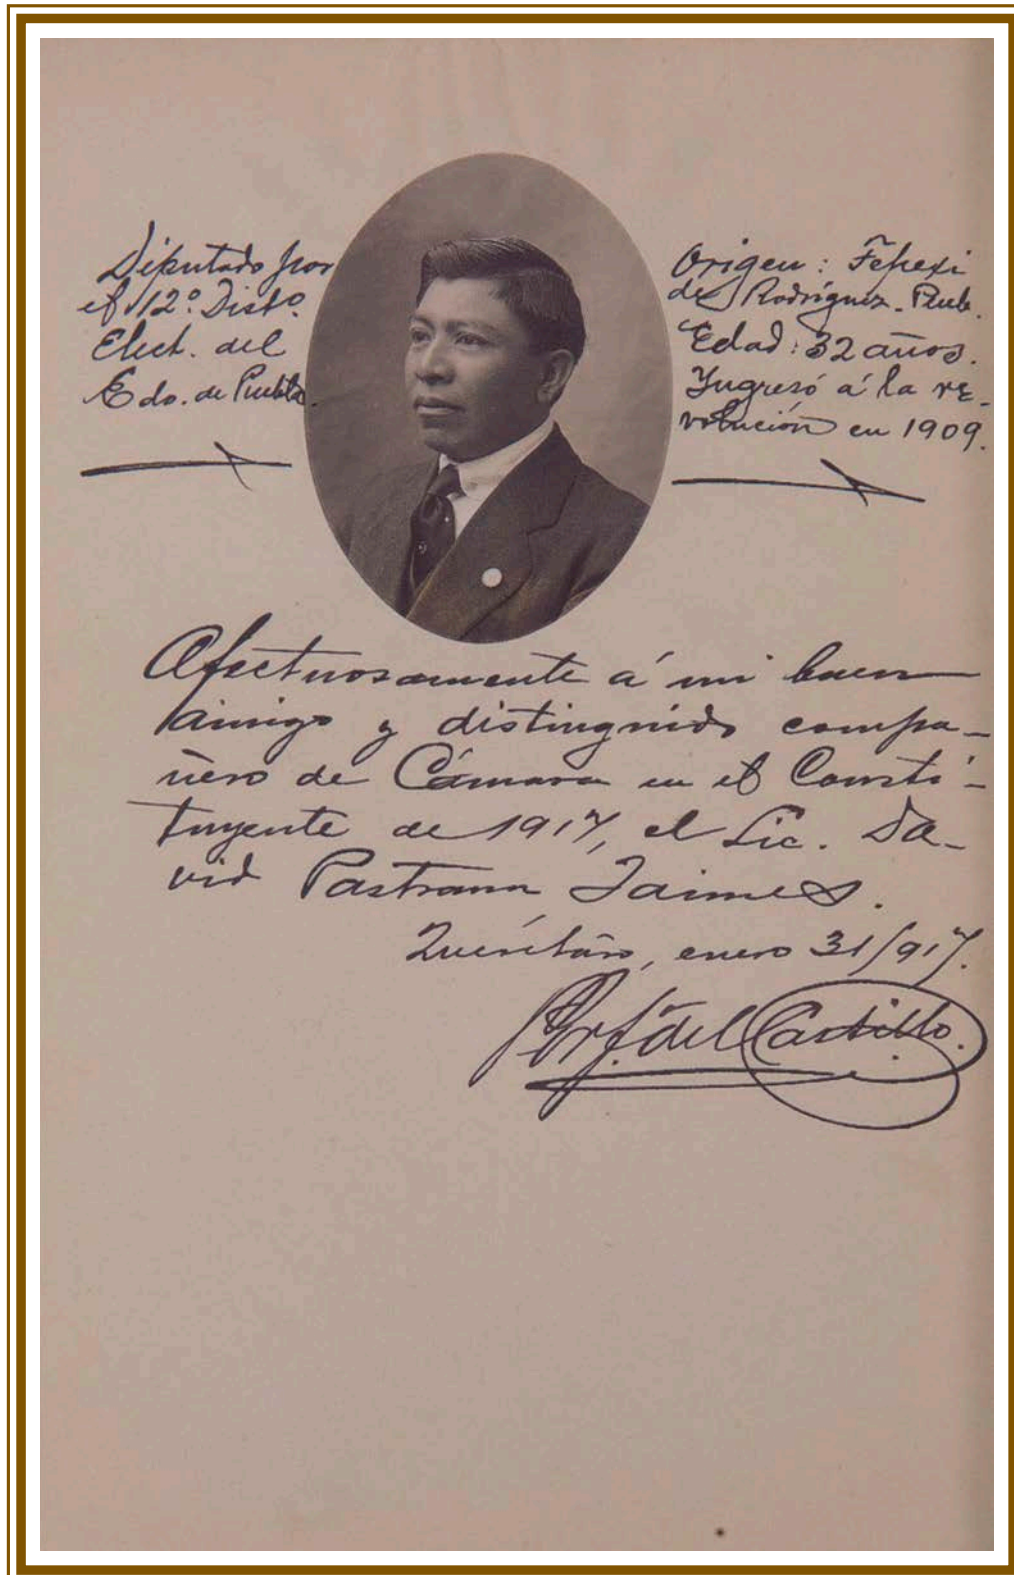 Diputado por
el 12º. Distº.
Elect. del
Edo. de Puebla.
Origen: Tepexi
de Rodríguez. Pueb.
Edad: 32 años.
Yngresó á la re-
volución en 1909.
Afectuosamente á mi buen
amigo y distinguido compa-
ñero de Cámara en el Consti-
tuyente de 1917, el Lic. Da-
vid Pastrana Jaimes.
Querétaro, enero 31/917.
Porf. del Castillo.